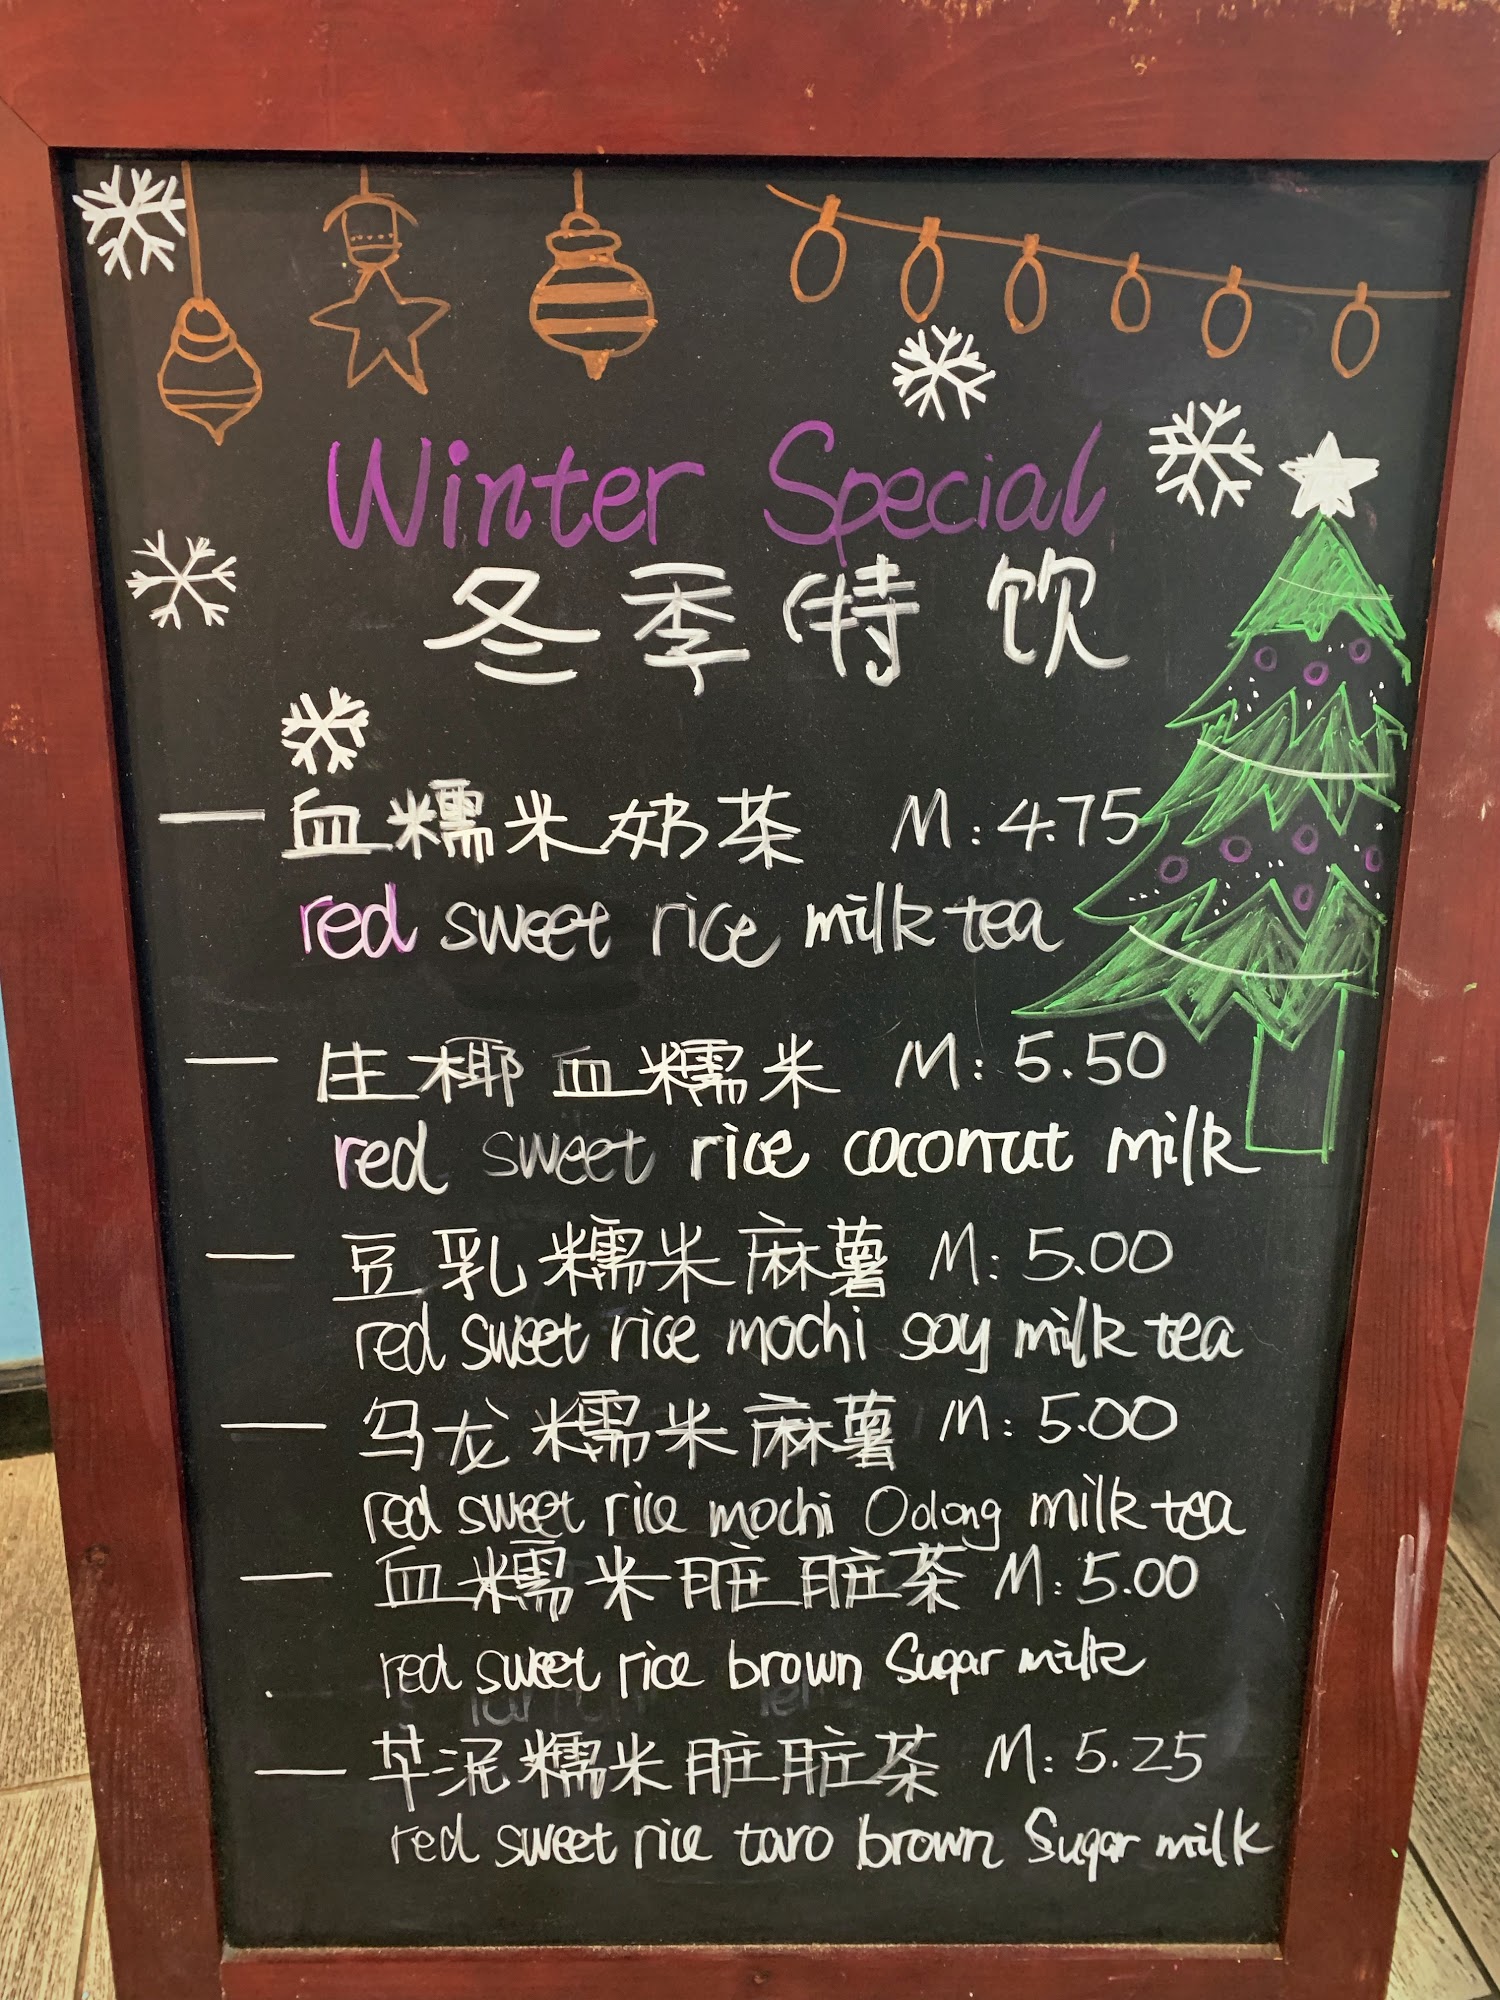 Winter Special
冬季特饮
血糯米奶茶 M: 4.75
red sweet rice milk tea
生椰血糯米 M: 5.50
red sweet rice coconut milk
豆乳糯米麻薯 M: 5.00
red sweet rice mochi soy milk tea
乌龙糯米麻薯 M: 5.00
red sweet rice mochi Oolong milk tea
血糯米脏脏茶 M: 5.00
red sweet rice brown Sugar milk
芋泥糯米脏脏茶 M: 5.25
red sweet rice taro brown Sugar milk